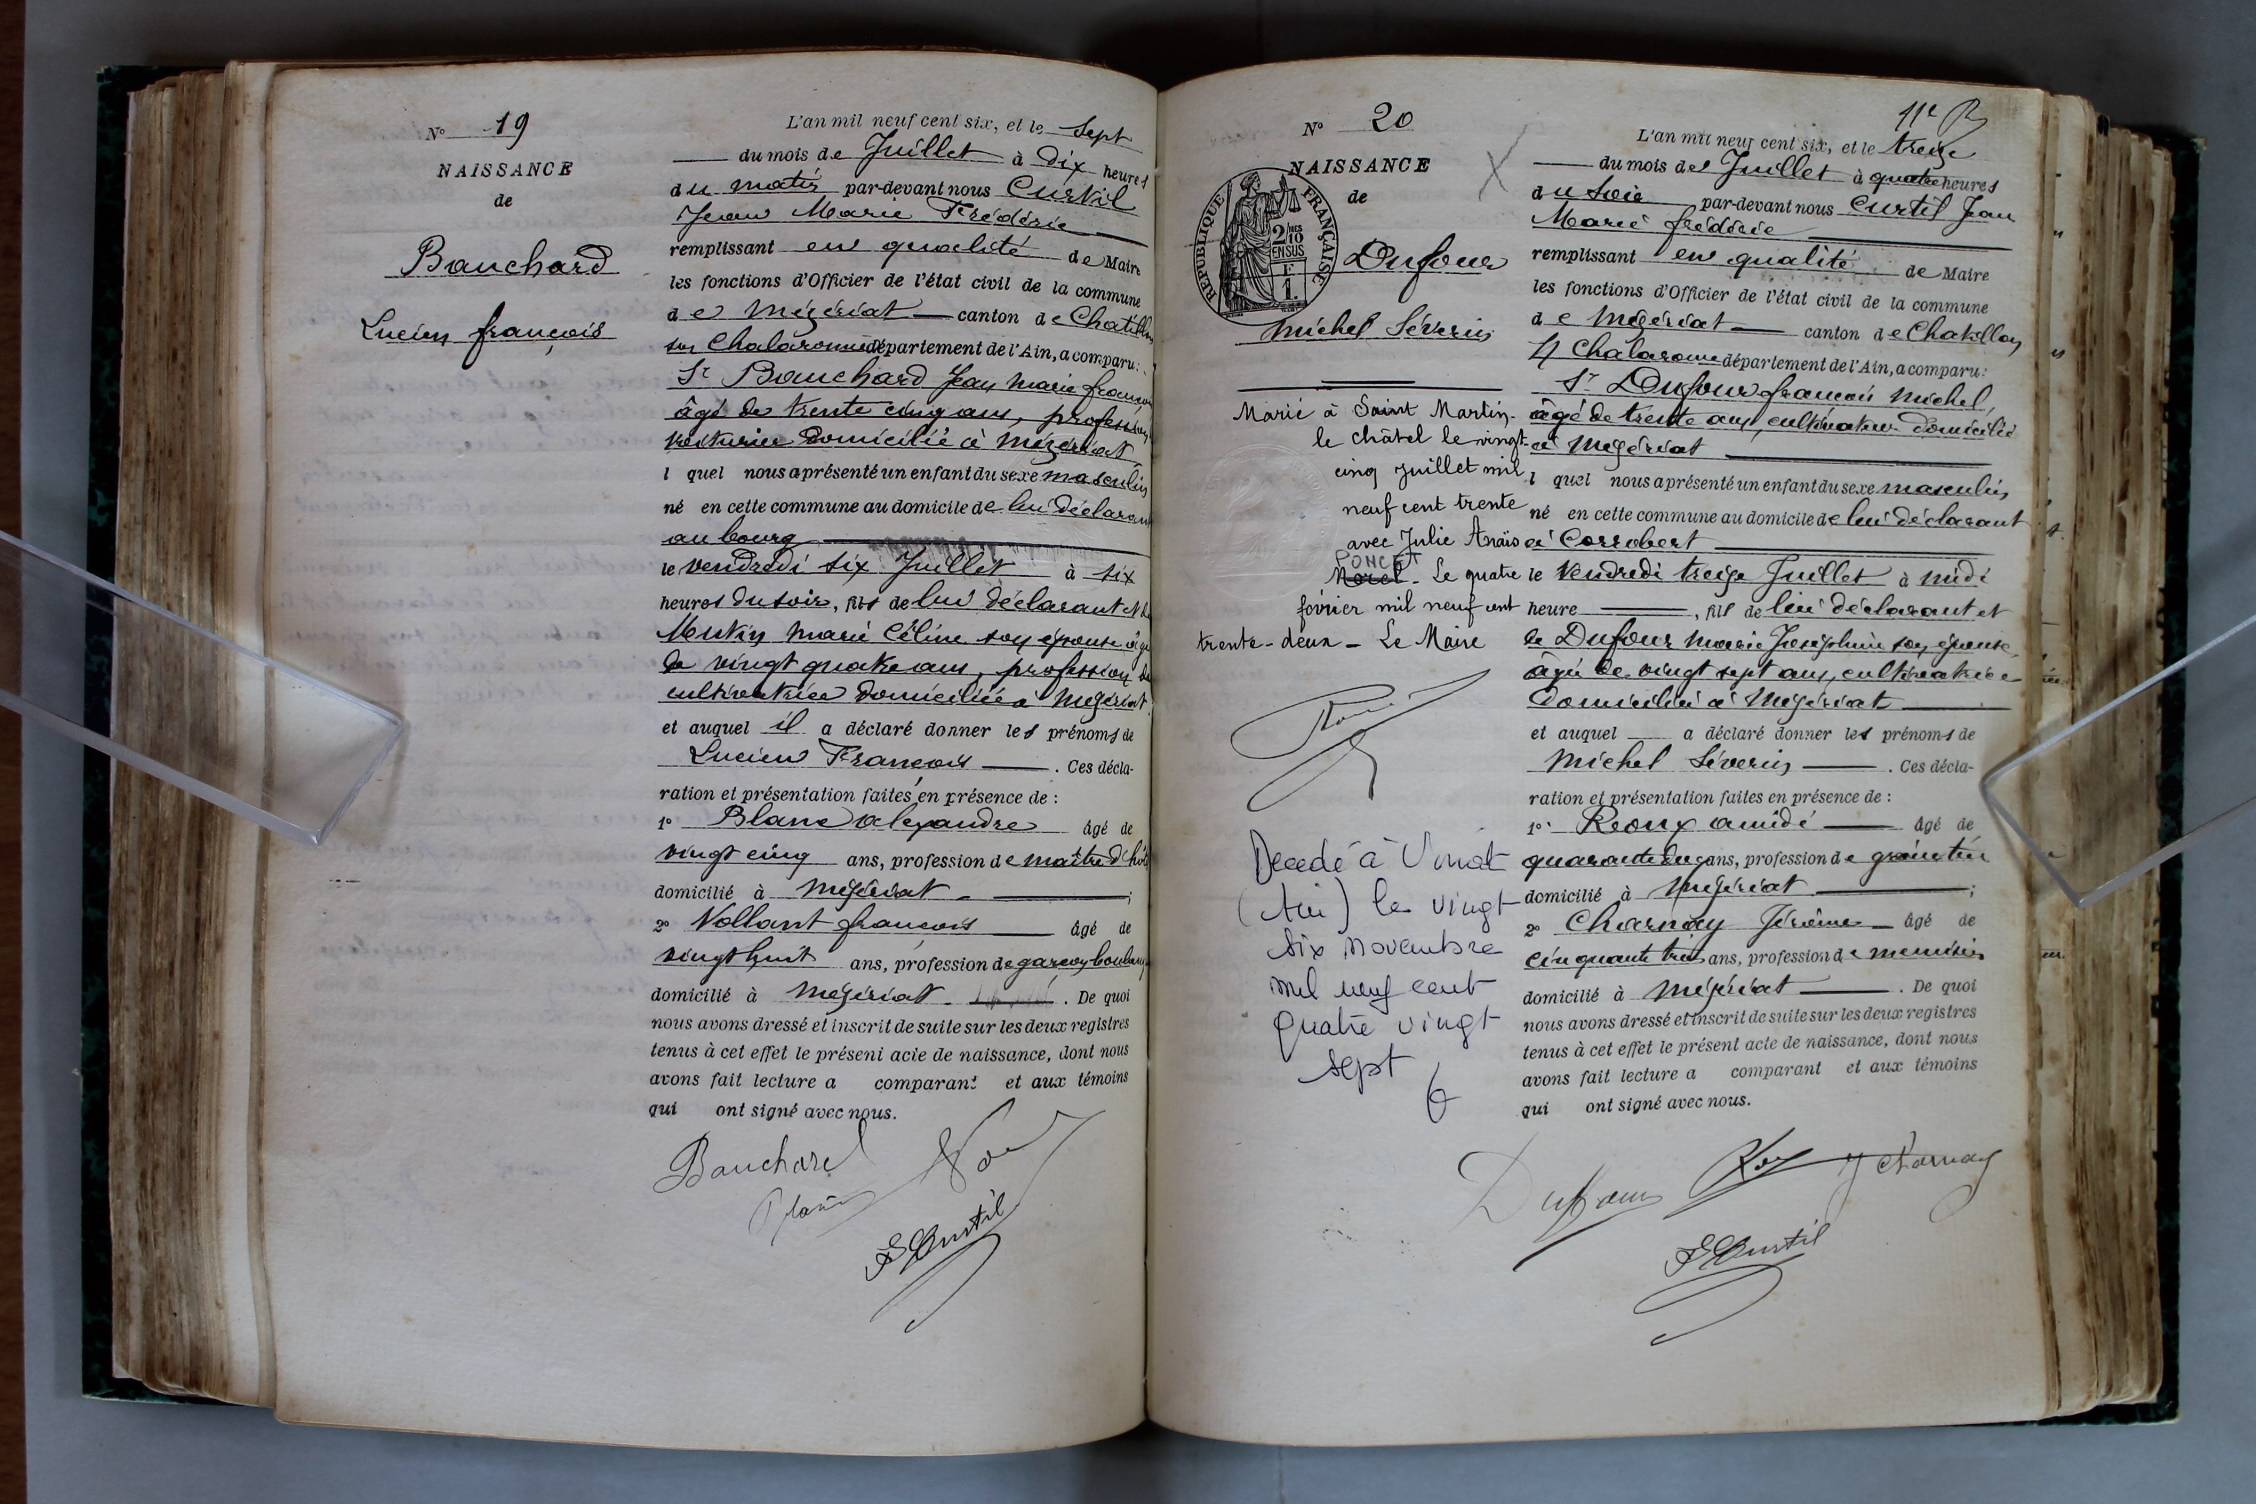 N° 19
NAISSANCE
de
Bauchard
Lucien françois
L'an mil neuf cent six, et le Sept
du mois de Juillet à Dix heures
du matin par-devant nous Curtil
Jean Marie Frédéric
remplissant en qualité de Maire
les fonctions d'Officier de l'état civil de la commune
de Mézériat canton de Chatillon
sur Chalaronne département de l'Ain, a comparu:
Sr Bauchard Jean Marie françois
âgé de trente cinq ans, profession
voiturier domicilié à Mézériat
l quel nous a présenté un enfant du sexe masculin
né en cette commune au domicile de lui déclarant
au bourg
le vendredi six Juillet à six
heures du soir, fils de lui déclarant et de
Mutin Marie Céline son épouse âgée
de vingt quatre ans, profession de
cultivatrice domiciliée à Mézériat
et auquel il a déclaré donner les prénoms de
Lucien François . Ces décla-
ration et présentation faites en présence de :
1° Blanc alexandre âgé de
vingt cinq ans, profession de maître d'hôtel
domicilié à Mézériat ;
2° Vollant françois âgé de
vingt huit ans, profession de garçon boulanger
domicilié à Mézériat . De quoi
nous avons dressé et inscrit de suite sur les deux registres
tenus à cet effet le présent acte de naissance, dont nous
avons fait lecture a comparant et aux témoins
qui ont signé avec nous.
Bauchard
F Curtil
11e B
N° 20
NAISSANCE
de
RÉPUBLIQUE FRANÇAISE
2/10 EN SUS
F
1.
Dufour
Michel Séverin
Marié à Saint Martin-
le châtel le vingt-
cinq juillet mil
neuf cent trente
avec Julie Anaïs
PONCET
Morel - Le quatre
février mil neuf cent
trente-deux - Le Maire
Decedé à Vonnas
(Ain) le vingt
six novembre
mil neuf cent
quatre vingt
sept
L'an mil neuf cent six, et le treize
du mois de Juillet à quatre heures
du Soir par-devant nous Curtil Jean
Marie frédéric
remplissant en qualité de Maire
les fonctions d'Officier de l'état civil de la commune
de Mézériat canton de Chatillon
s/ Chalaronne département de l'Ain, a comparu:
Sr Dufour françois Michel,
âgé de trente ans, cultivateur domicilié
à Mézériat
l quel nous a présenté un enfant du sexe masculin
né en cette commune au domicile de lui déclarant
à Corrobert
le Vendredi treize Juillet à midi
heure , fils de lui déclarant et
de Dufour Marie Joséphine son épouse,
âgée de vingt sept ans, cultivatrice
domiciliée à Mézériat
et auquel a déclaré donner les prénoms de
Michel Séverin . Ces décla-
ration et présentation faites en présence de :
1° âgé de
ans, profession de
domicilié à Mézériat ;
2° Charnay Jérôme âgé de
cinquante trois ans, profession de menuisier
domicilié à Mézériat . De quoi
nous avons dressé et inscrit de suite sur les deux registres
tenus à cet effet le présent acte de naissance, dont nous
avons fait lecture a comparant et aux témoins
qui ont signé avec nous.
Dufour
J Charnay
F Curtil